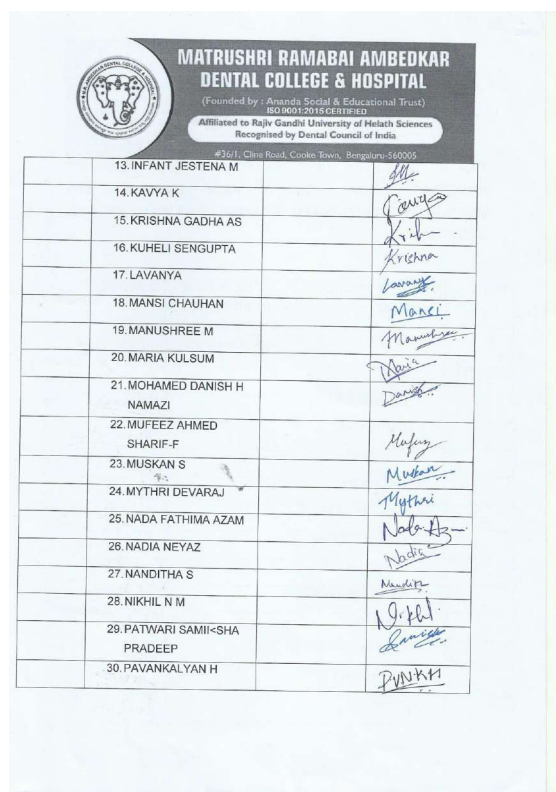 MATRUSHRI RAMABAI AMBEDKAR
DENTAL COLLEGE & HOSPITAL
(Founded by : Ananda Social & Educational Trust)
ISO 9001:2015 CERTIFIED
Affiliated to Rajiv Gandhi University of Helath Sciences
Recognised by Dental Council of India
#36/1, Cline Road, Cooke Town, Bengaluru-560005
13. INFANT JESTENA M
14. KAVYA K
15. KRISHNA GADHA AS
16. KUHELI SENGUPTA
Krishna
17. LAVANYA
Lavanya
18. MANSI CHAUHAN
Mansi
19. MANUSHREE M
Manushree
20. MARIA KULSUM
Maria
21. MOHAMED DANISH H
Danish
NAMAZI
22. MUFEEZ AHMED
SHARIF-F
23. MUSKAN S
Muskan
24. MYTHRI DEVARAJ
Mythri
25. NADA FATHIMA AZAM
26. NADIA NEYAZ
Nadia
27. NANDITHA S
28. NIKHIL N M
Nikhil
29. PATWARI SAMII<SHA
PRADEEP
30. PAVANKALYAN H